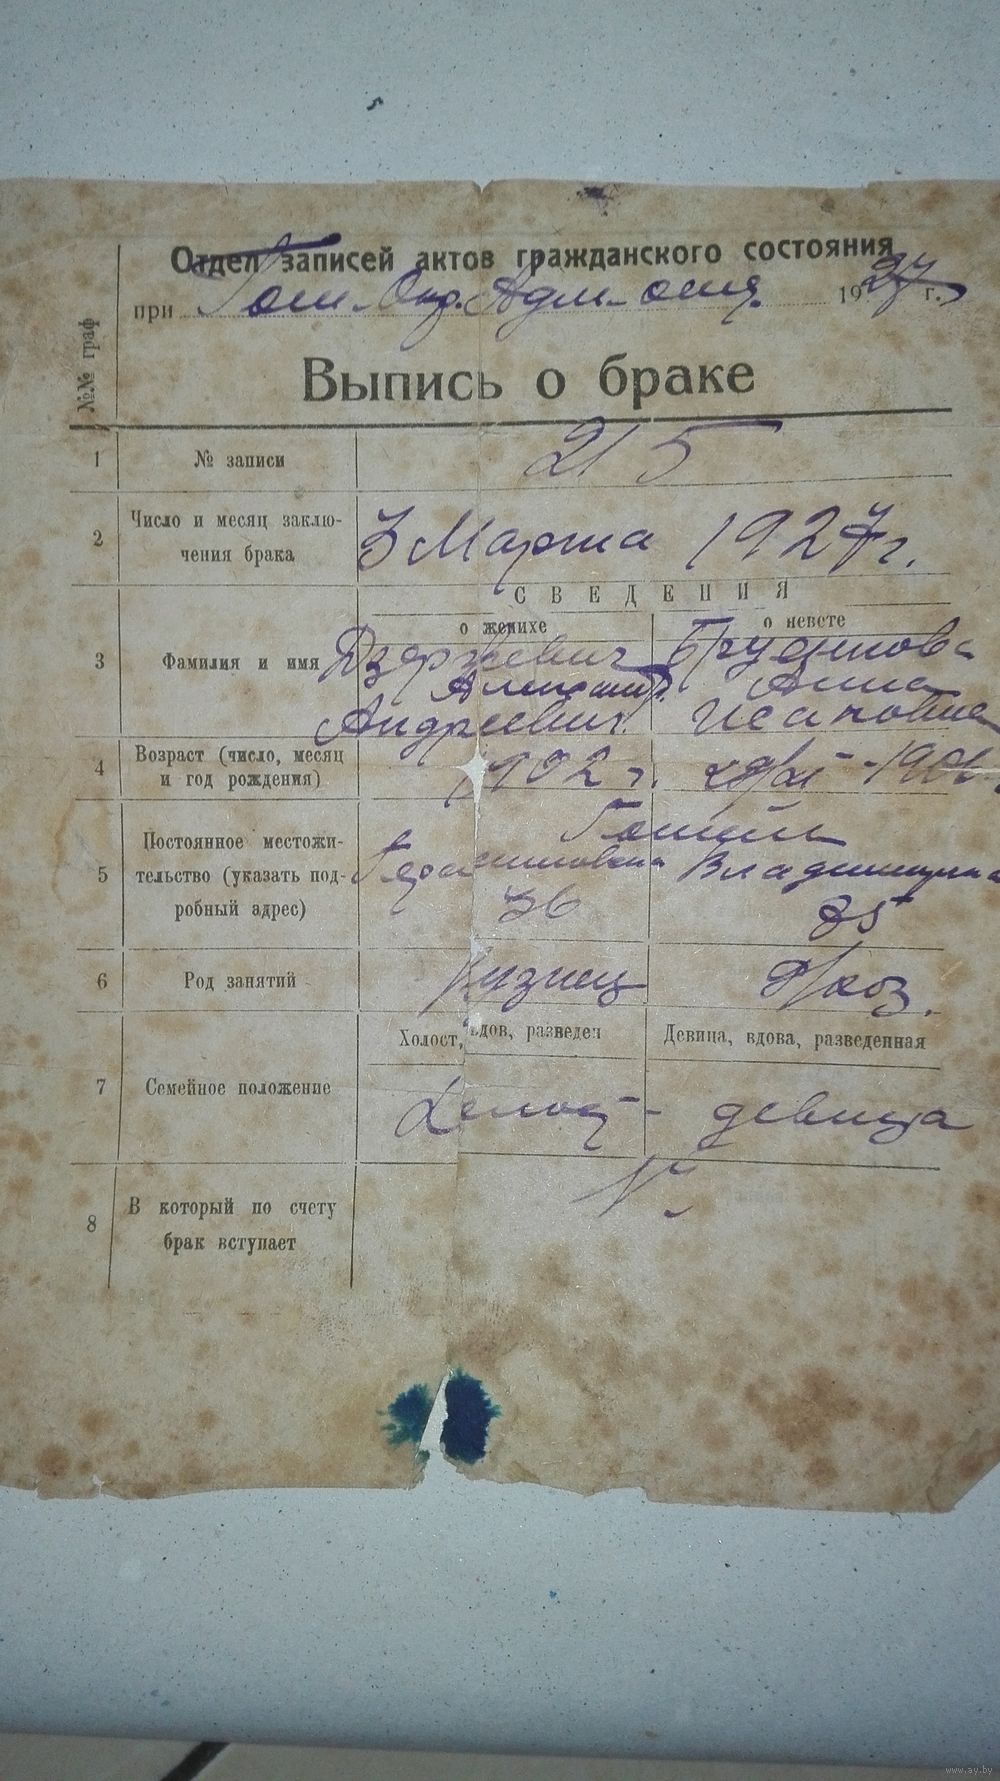 Отдел записей актов гражданского состояния
при Гом. Окр. Адм. 1927 г.
№№ граф
Выпись о браке
1 № записи 215
2 Число и месяц заклю-
чения брака 3 Марта 1927 г.
СВЕДЕНИЯ
о женихе о невесте
3 Фамилия и имя Дзержевич
Александр Анна
Андреевич Исаковна
4 Возраст (число, месяц
и год рождения) 1902 г.
5 Постоянное местожи-
тельство (указать под-
робный адрес)
Гомель
36
6 Род занятий Кузнец
7 Семейное положение
Холост, вдов, разведен Девица, вдова, разведенная
Холост - девица
8 В который по счету
брак вступает
www.ay.by